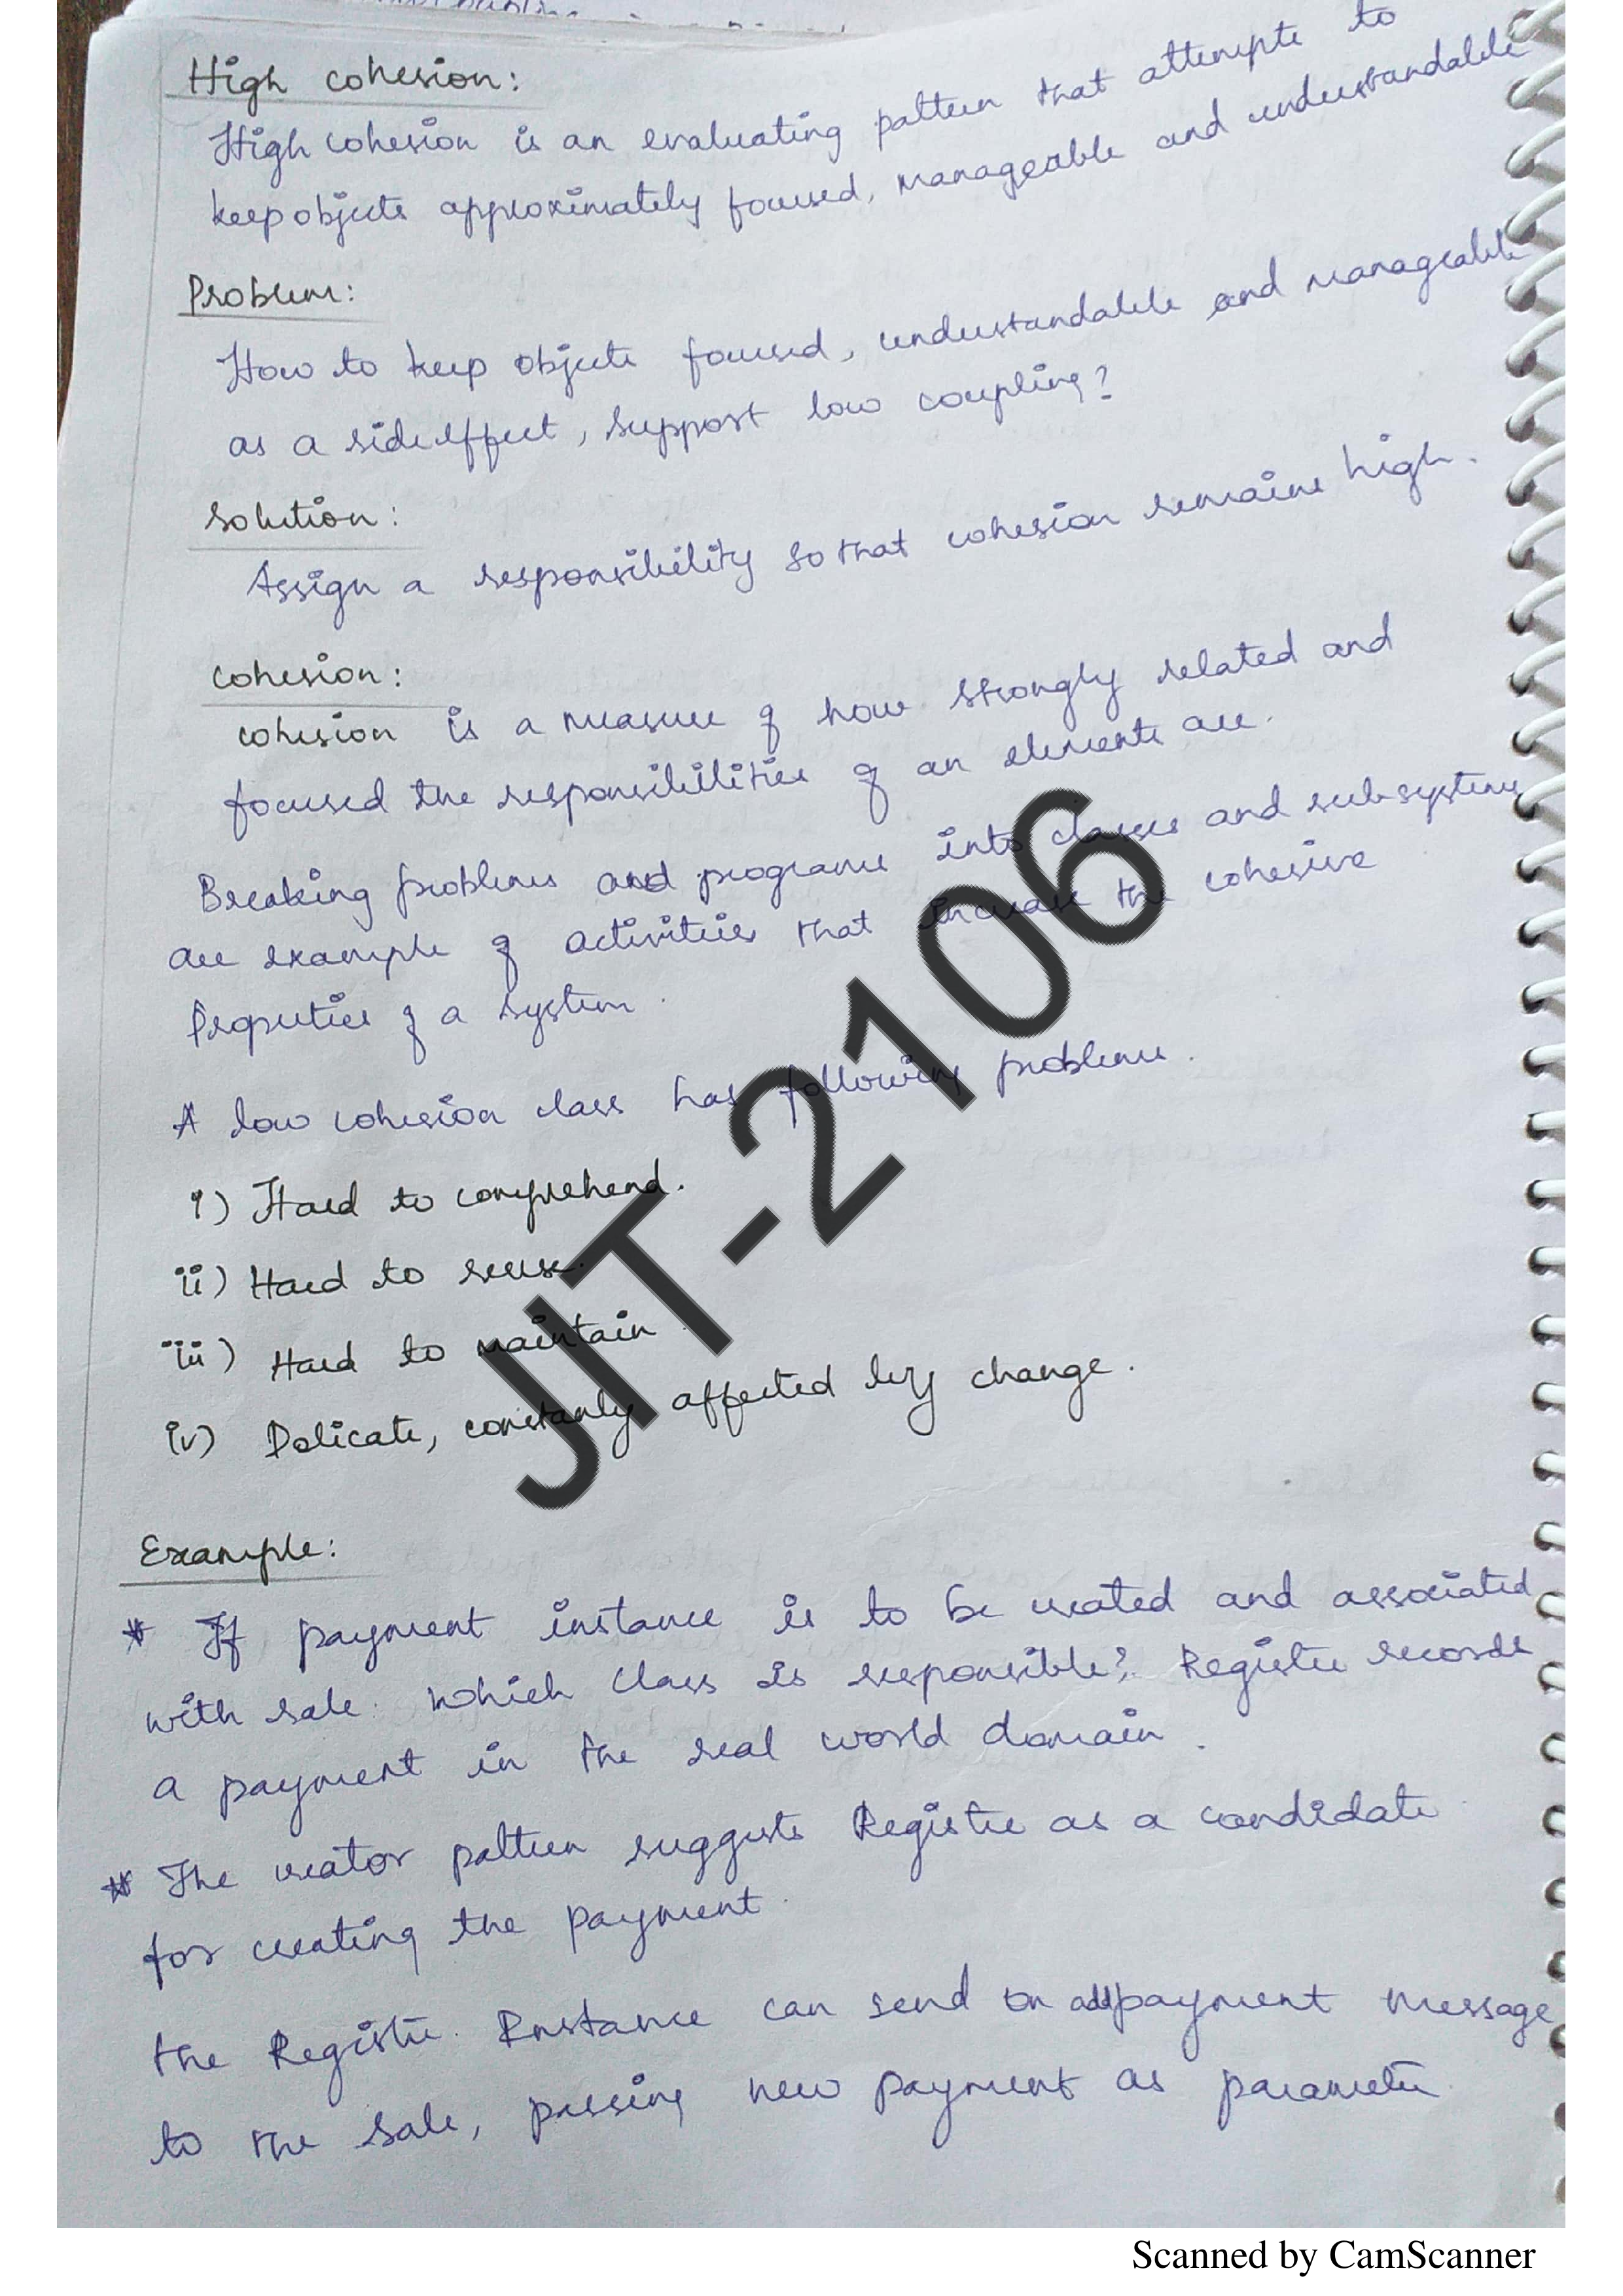 High cohesion:
High cohesion is an evaluating pattern that attempts to
keep objects approximately focused, manageable and understandable
Problem:
How to keep objects focused, understandable and manageable
as a side effect, support low coupling?
Solution:
Assign a responsibility so that cohesion remains high.
Cohesion:
cohesion is a measure of how strongly related and
focused the responsibilities of an elements are.
Breaking problems and programs into classes and subsystems
are example of activities that increase the cohesive
Properties of a system.
A low cohesion class has following problems.
i) Hard to comprehend.
ii) Hard to reuse.
iii) Hard to maintain.
iv) Delicate, constanly affected by change.
Example:
* If payment instance is to be created and associated
with sale. Which class is responsible? Register records
a payment in the real world domain.
* The creator pattern suggests Register as a candidate
for creating the payment.
the Register. Instance can send an addpayment message
to the sale, passing new payment as parameter
JIT-2106
Scanned by CamScanner